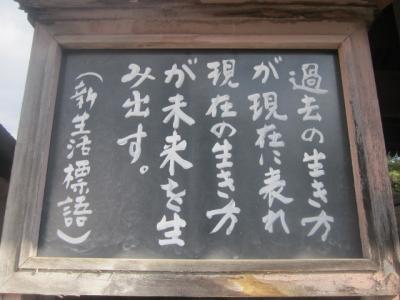 過去の生き方
が現在に表れ
現在の生き方
が未来を生
み出す。
(新生活標語)